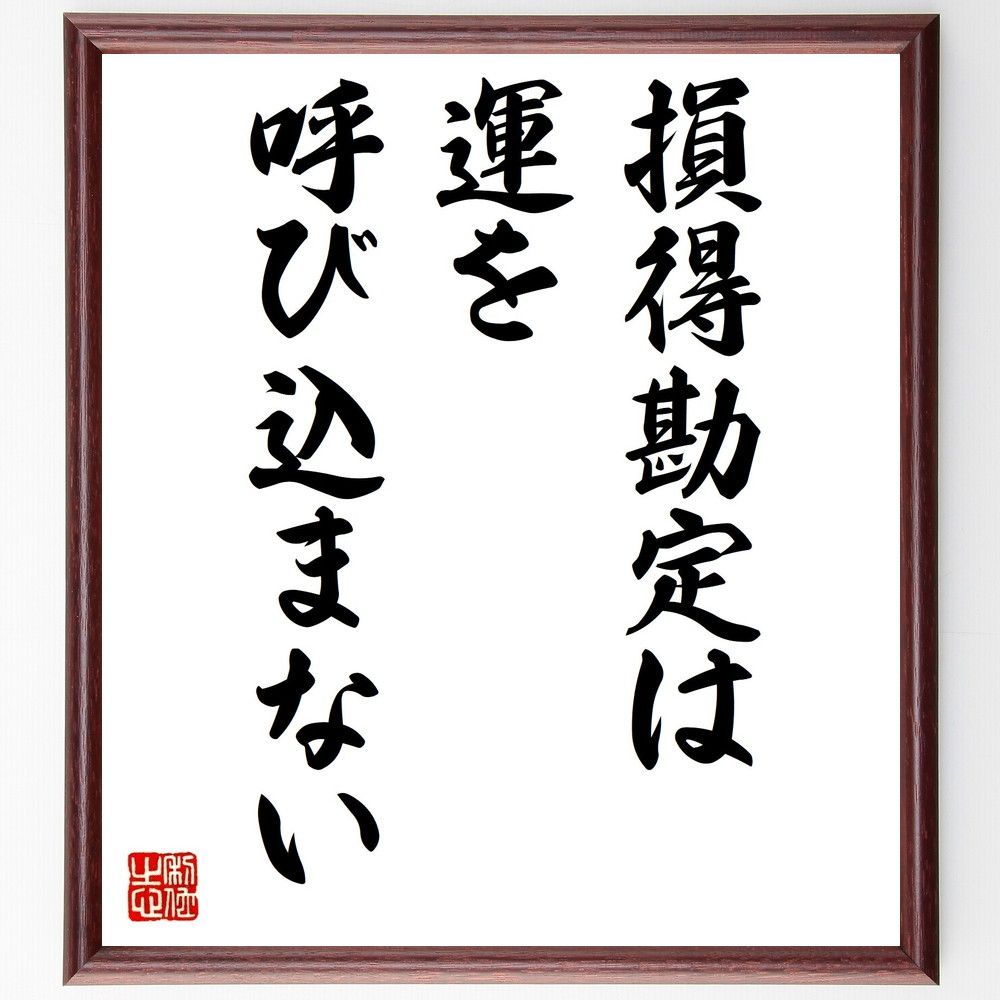 損得勘定は
運を
呼び込まない